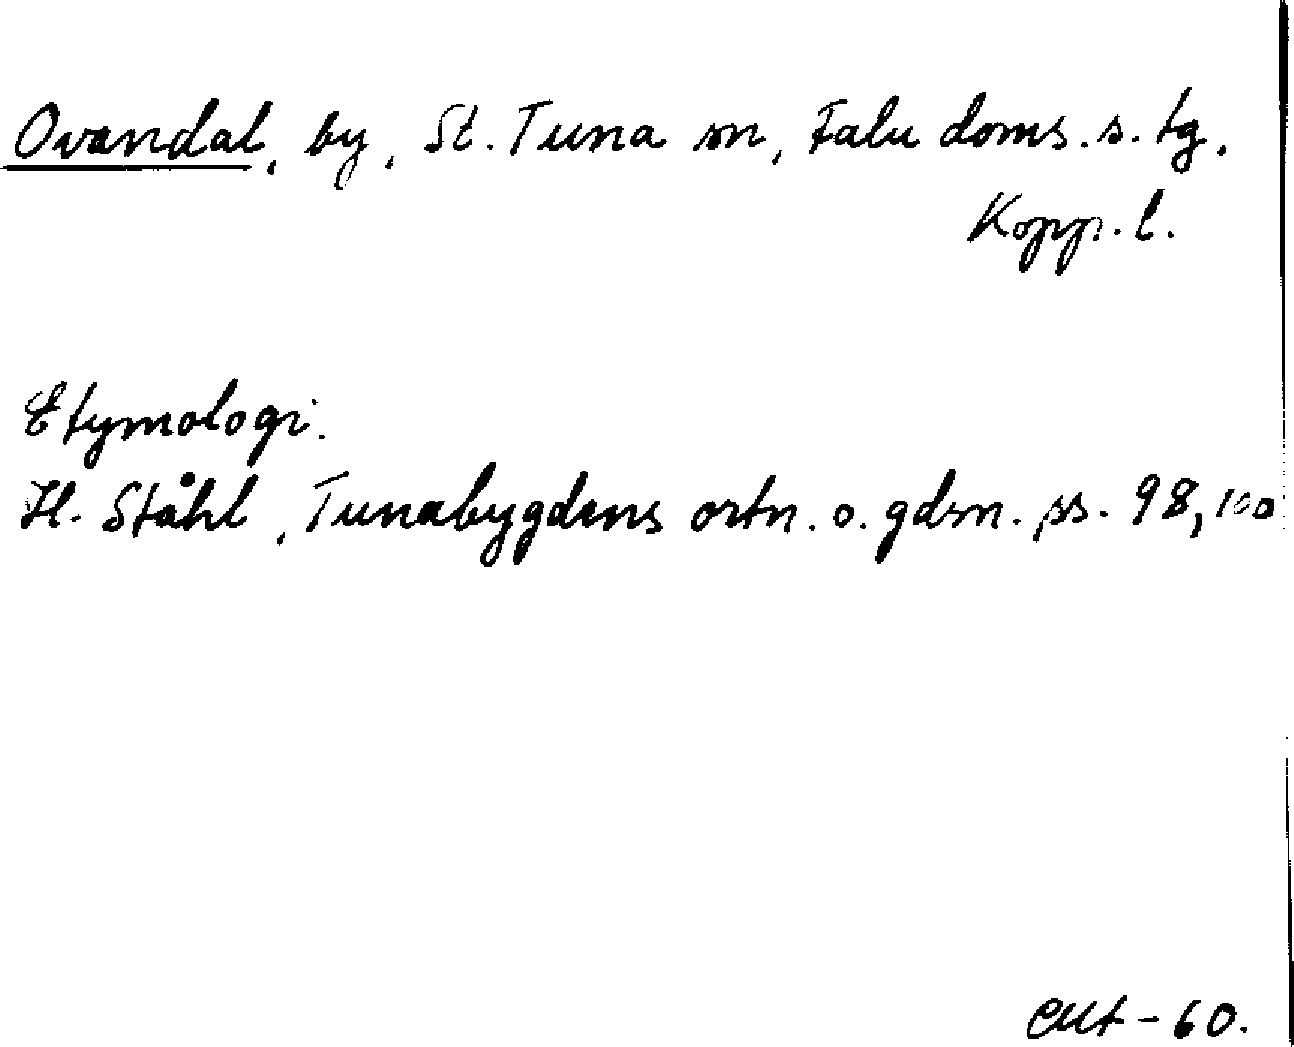 Ovandal, by, St. Tuna sn, Falu doms. s. tg,
Kopp. l.
Etymologi.
H. Ståhl, Tunabygdens ortn. o. gdsn. ss. 98, 100
-60.